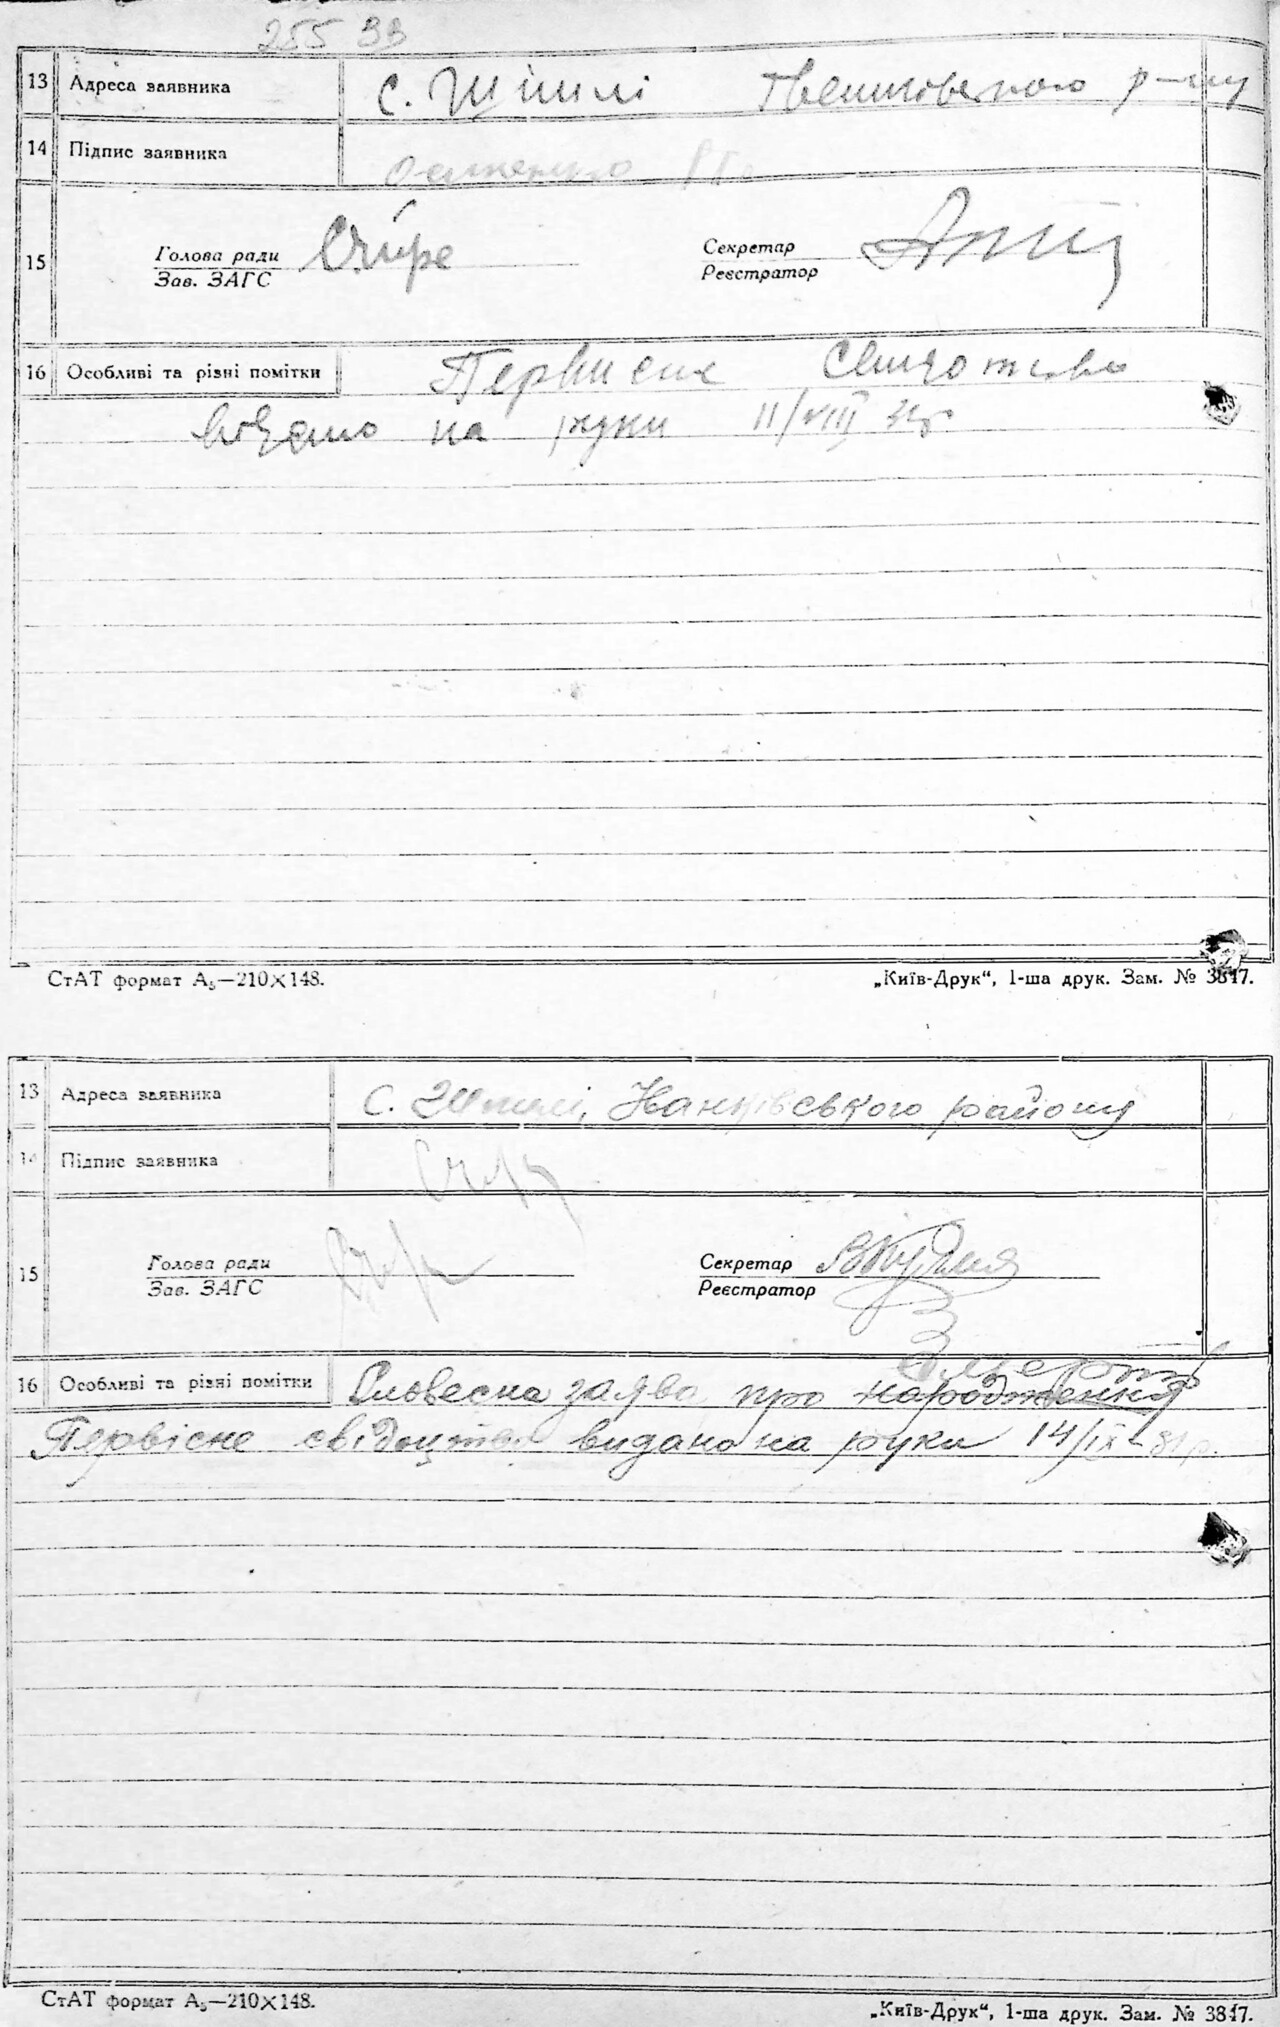 255 33
13 Адреса заявника с. Шпилі р-ну
14 Підпис заявника
15 Голова ради Секретар
Зав. ЗАГС Реєстратор
16 Особливі та різні помітки Первисне
на руки 11/VIII 31р
СтАТ формат А₅—210×148. „Київ-Друк“, 1-ша друк. Зам. № 3847.
13 Адреса заявника С. Шпилі, Іванківського району
14 Підпис заявника
15 Голова ради Секретар
Зав. ЗАГС Реєстратор
смерть
16 Особливі та різні помітки Словесна заява про народження
Первісне свідоцтво видано на руки 14/IX-31р.
СтАТ формат А₅—210×148. „Київ-Друк“, 1-ша друк. Зам. № 3847.